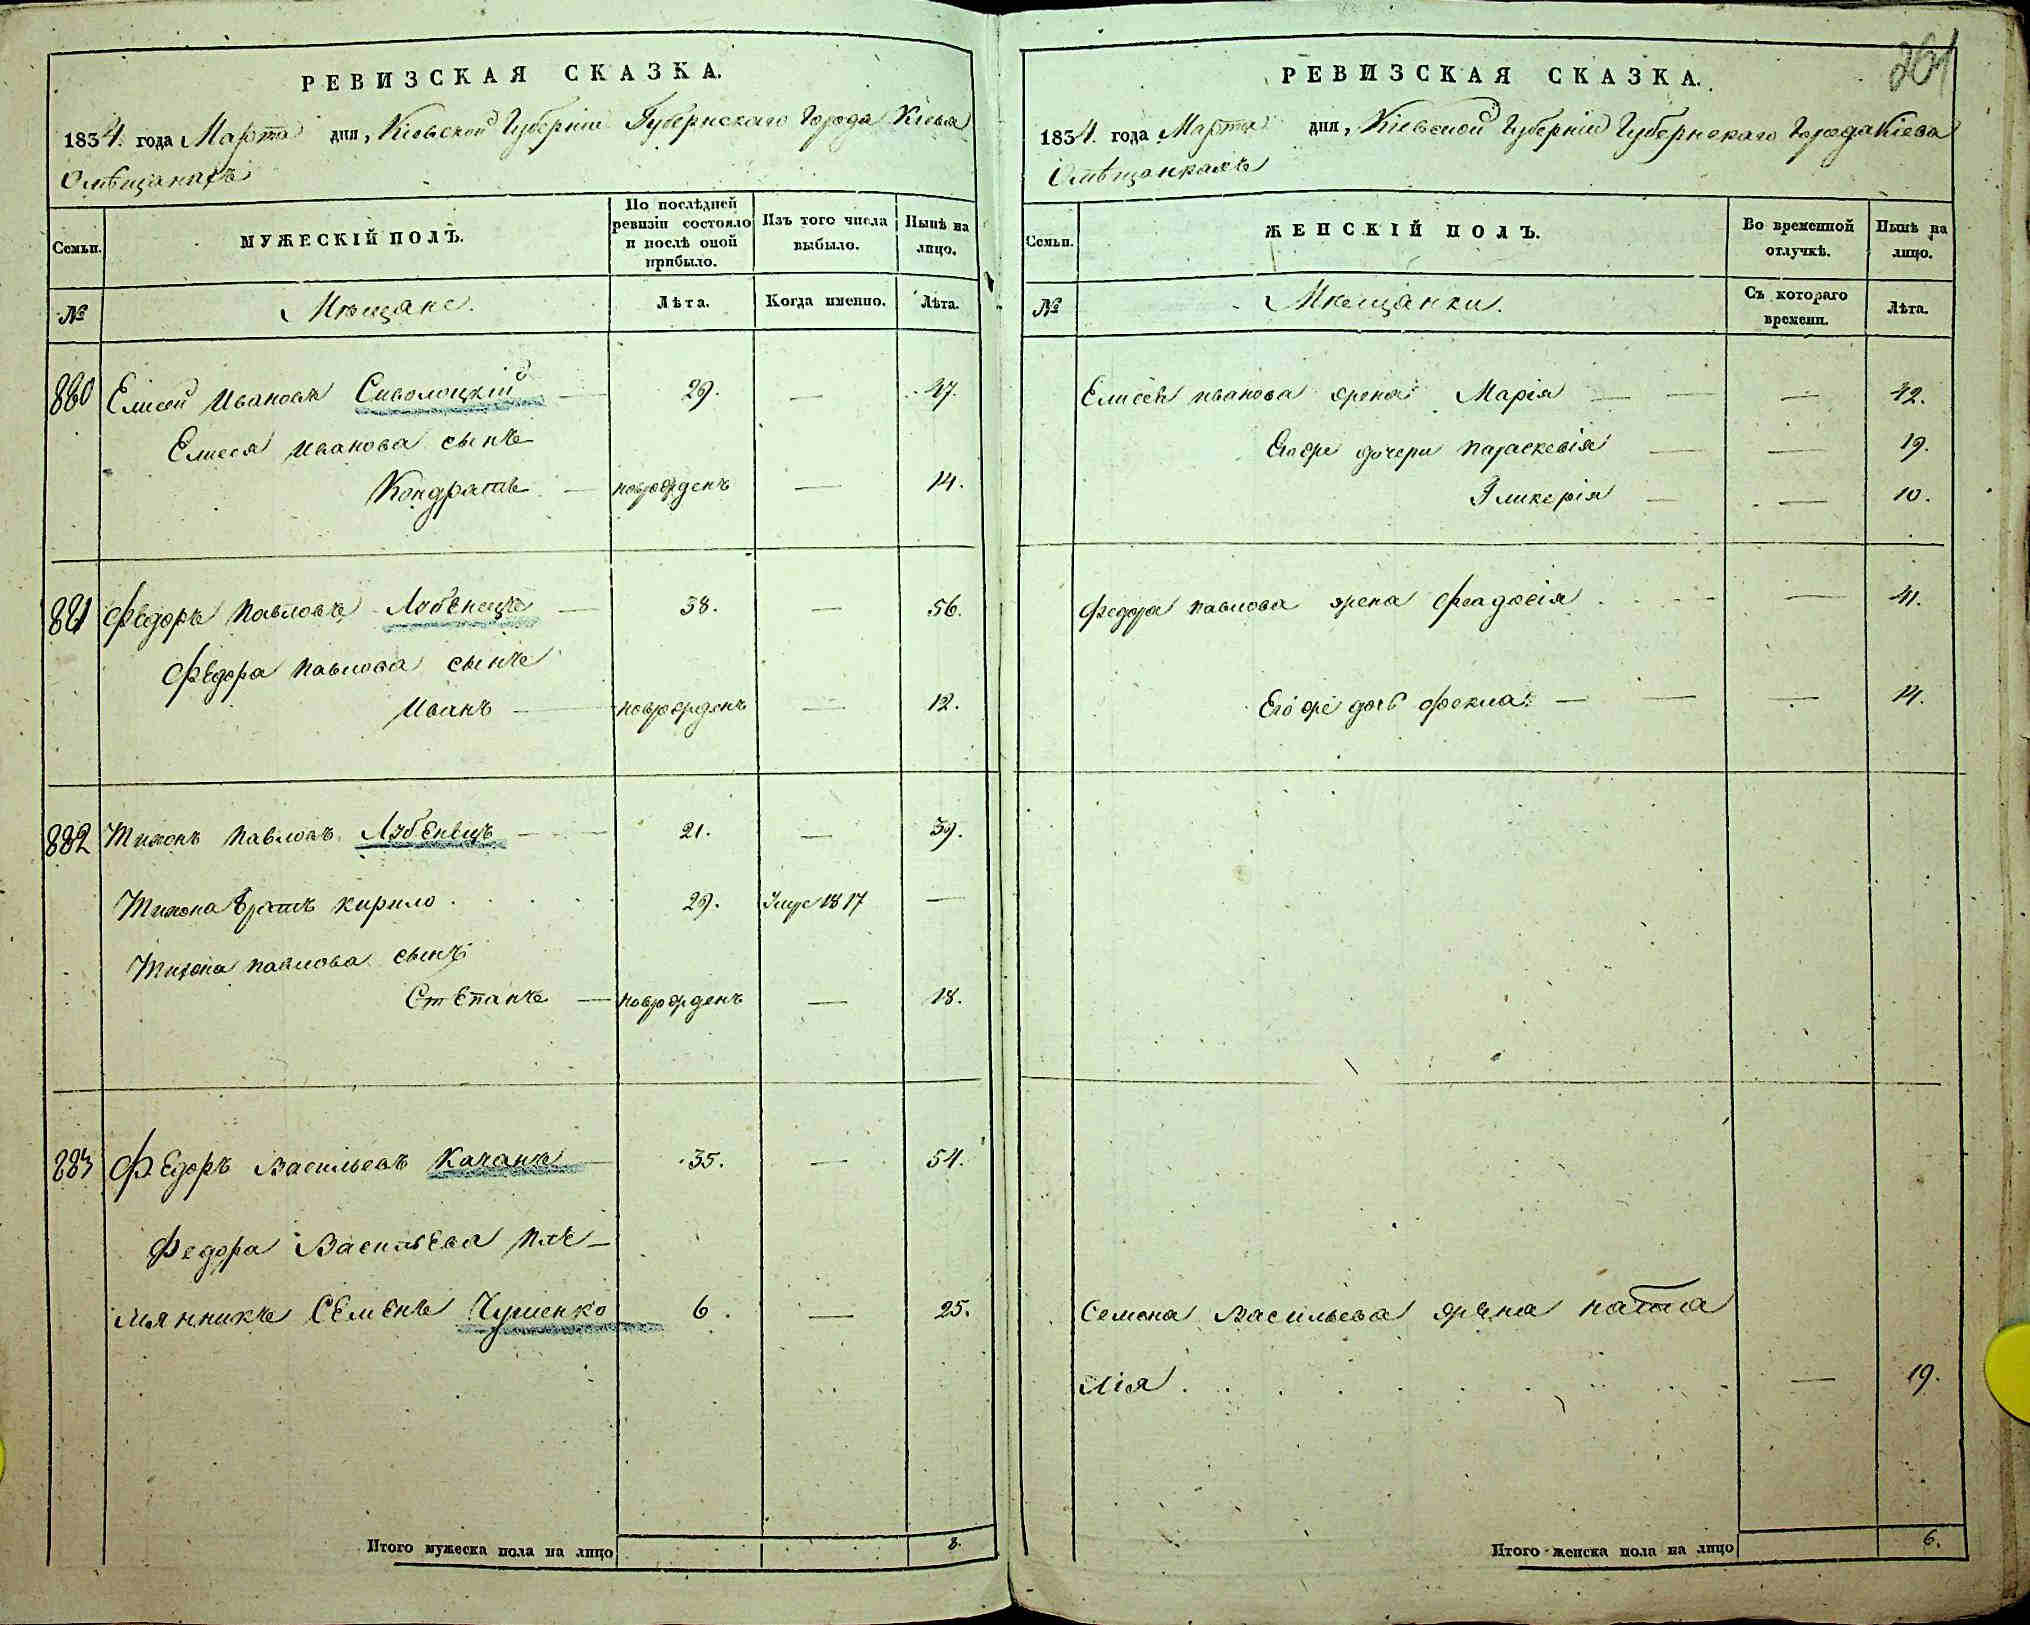 РЕВИЗСКАЯ СКАЗКА.
1834. года Марта дня, Кіевской Губерніи Губернскаго Города Кіева
О мѣщанахъ
Семьи.
МУЖЕСКІЙ ПОЛЪ.
По послѣдней ревизіи состояло и послѣ оной прибыло.
Изъ того числа выбыло.
Нынѣ на лицо.
№
Мѣщане.
Лѣта.
Когда именно.
Лѣта.
880 Елисей Ивановъ Сиволоцкій 29. — 47.
Елисея Иванова сынъ
Кондратъ — новрожденъ — 14.
881 Федоръ Павловъ Любенецъ — 38. — 56.
Федора Павлова сынъ
Иванъ — новрожденъ — 12.
882 Тихонъ Павловъ Любенецъ — 21. — 39.
Тихона братъ Кирило 29. Умре 1817 —
Тихона Павлова сынъ
Степанъ — новрожденъ — 18.
883 Федоръ Васильевъ Качанъ — 35. — 54.
Федора Васильева пле-
мянникъ Семенъ Чушенко 6. — 25.
Итого мужеска пола на лицо 8.
261
РЕВИЗСКАЯ СКАЗКА.
1834. года Марта дня, Кіевской Губерніи Губернскаго Города Кіева
О мѣщанкахъ
Семьи.
ЖЕНСКІЙ ПОЛЪ.
Во временной отлучкѣ.
Нынѣ на лицо.
№
Мѣщанки.
Съ котораго времени.
Лѣта.
Елисея Иванова жена Марія — — — 42.
Его же дочери Параскевія — — 19.
Гликерія — — 10.
Федора Павлова жена Феадосія — — 41.
Его же дочь Фекла — — — 14.
Семена Васильева жена Ната
лія — 19.
Итого женска пола на лицо 6.